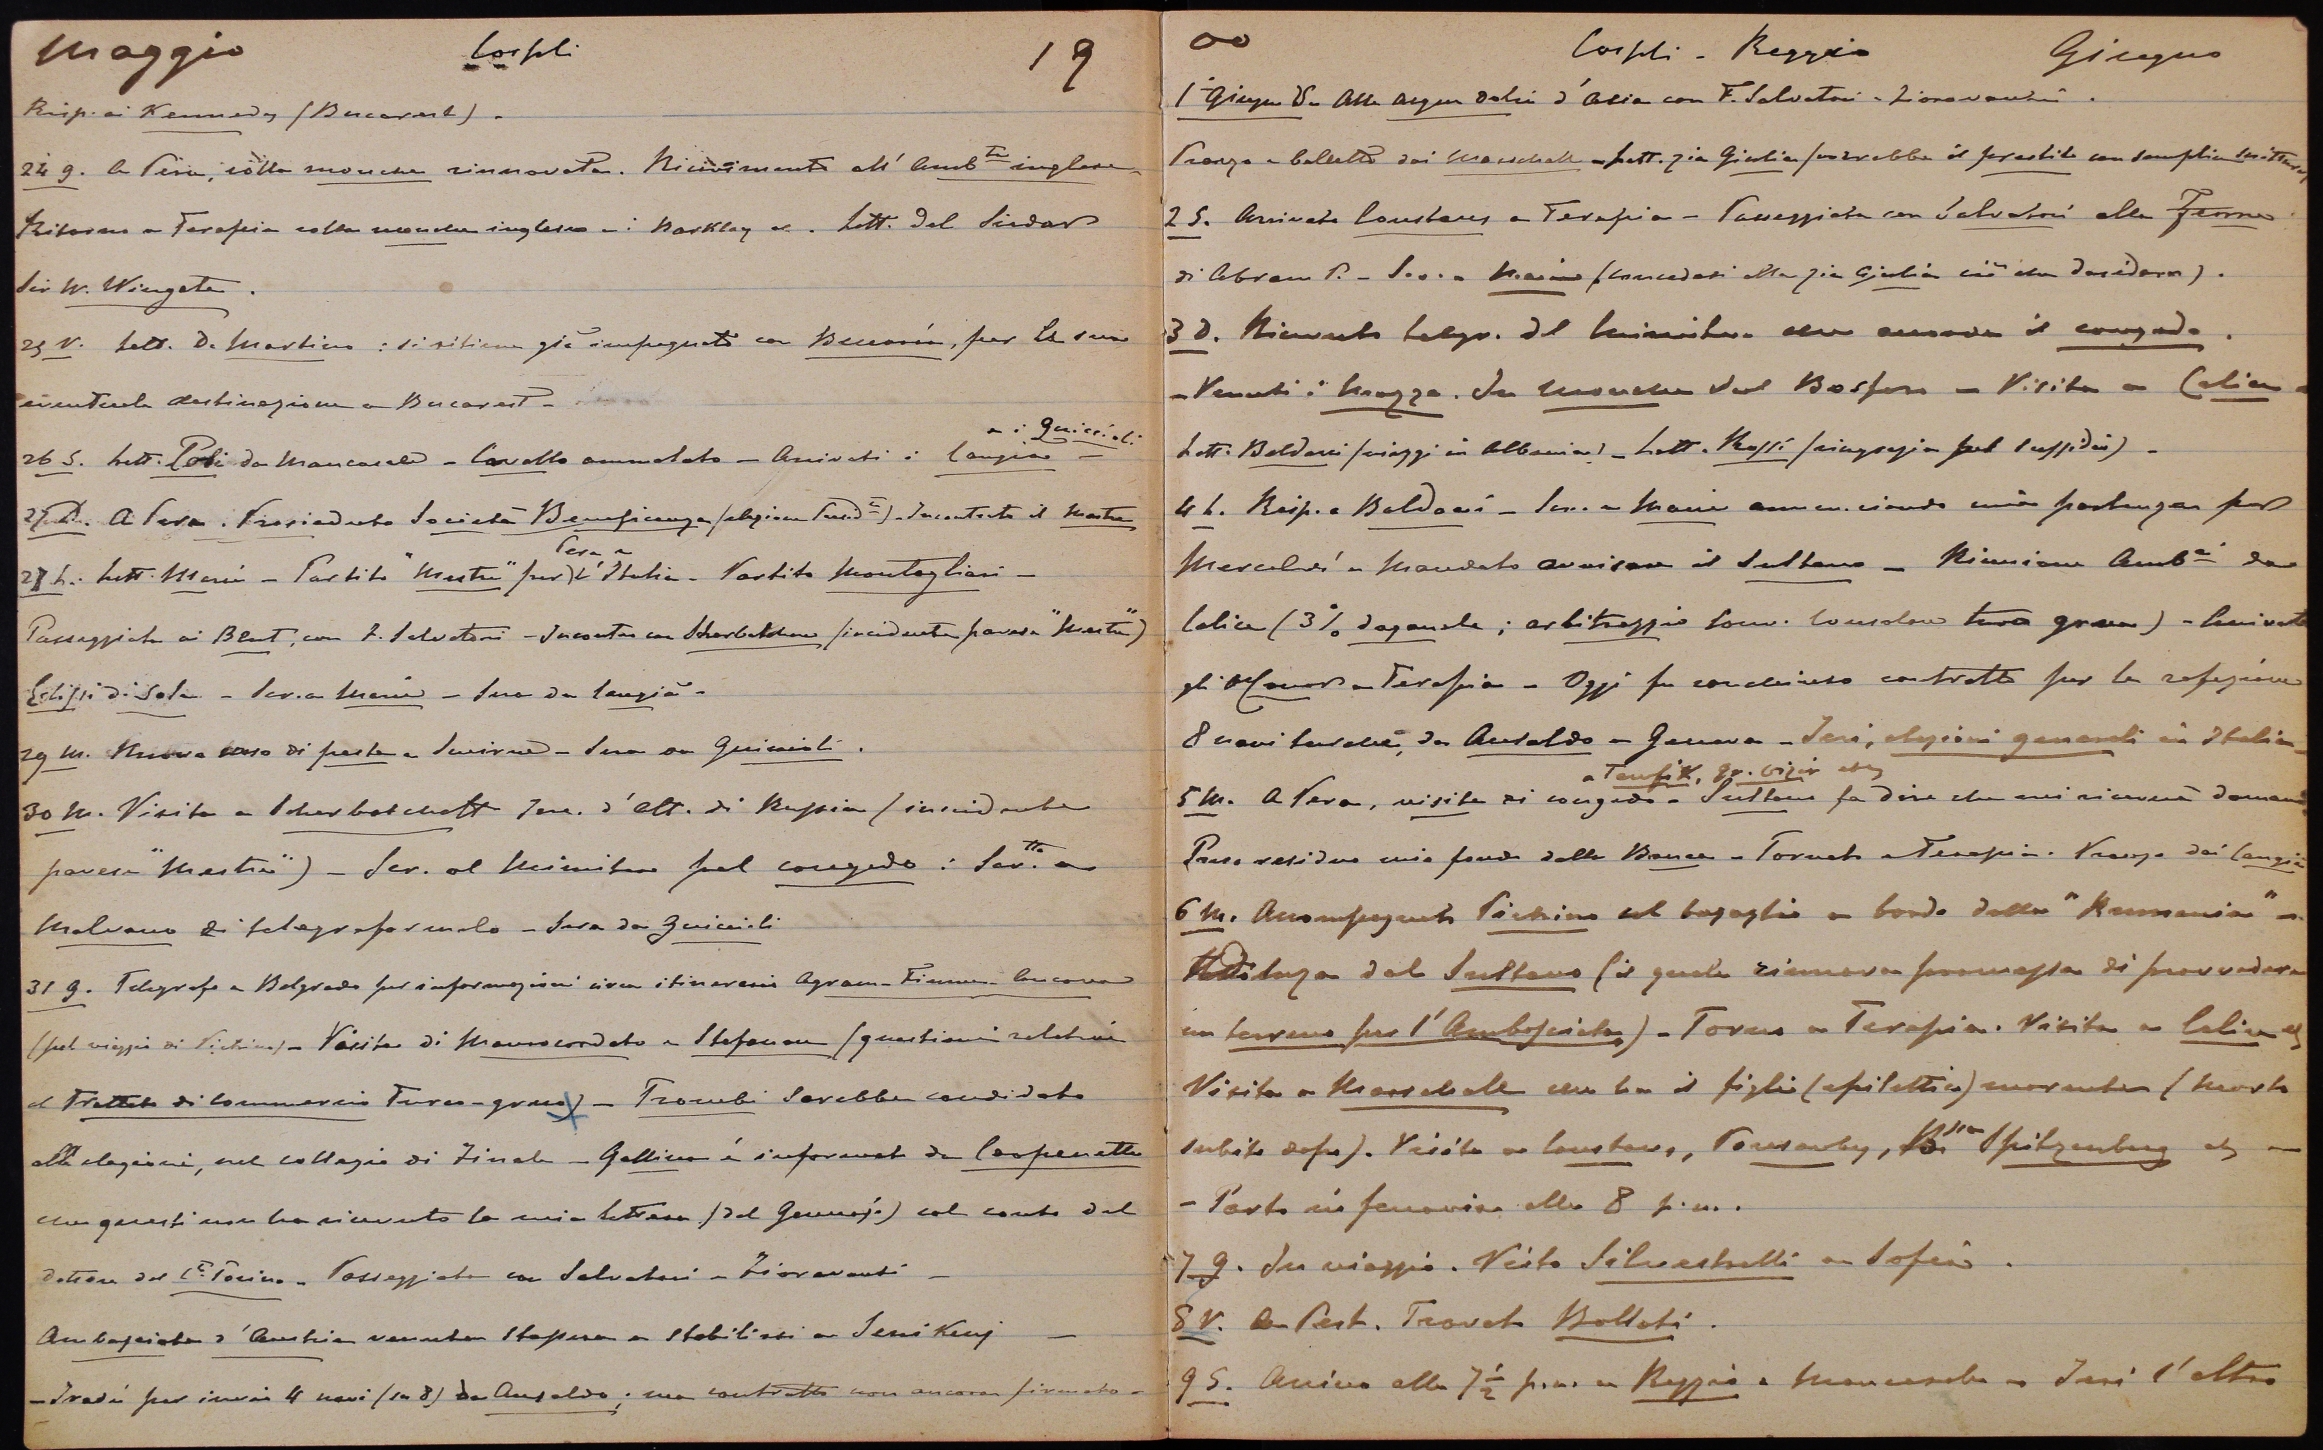 Maggio Cospli 19
Risp. ai Kennedy (Bucarest).
24 g. A Pera, colla mouche rinnovata. Ricevimento all' Amb.ta inglese
Ritorno a Terapia colla mouche inglese e i Barklay. Lett. del Sirdar
Sir W. Wingate.
25 V. Lett. De Martino : si ritiene già impegnato con Beccaria, per la sua
eventuale destinazione a Bucarest -
26 S. Lett. da Mancasale - Cavallo ammalato - Arrivati i Cangià - e i Guiccioli
27 D. A Pera. Presieduto Società Beneficenza (elezione Presid.) - Incontrato il Mestre
28 L. Lett. Marié - Partito "Mestre" per l'Italia - Partito Montagliari -
Passeggiata ai Bent, con F. Salvatori - (incidente pavese "Mestre")
Eclissi di Sole - Scr. a Marié - Sera da Cangià -
29 M. Nuovo caso di peste a Smirne - Sera da Guiccioli.
30 M. Visita a Scherbatcheff Inc. d'Aff. di Russia (incidente
pavese "Mestre") - Scr. al Ministero pel congedo : Scr.tto a
Malvano di telegrafarmelo - Sera da Guiccioli
31 g. Telegrafo a Belgrado per informazioni circa itinerario Agram - Fiume - Ancona
(pel viaggio di Pietrino) - Visita di Maurocordato e Stefanou (questioni relative
al Trattato di Commercio Turco-greco) - Trombi sarebbe candidato
alle elezioni, nel collegio di Finale - Gallina è informato da Carpenetto
che questi non ha ricevuto la mia lettera (del Gennajo) col conto del
dottore del Torino - Passeggiata con Salvatori e Fioravanti -
Ambasciata d'Austria venuta stasera a stabilirsi a Jeni Keuj -
- Iradé per invio 4 navi (su 8) da Ansaldo ; ma contratto non ancora firmato -
00 Cospli - Reggio Giugno
1 Giugno V. Alle acque dolci d'Asia con F. Salvatori e Fioravanti.
Pranzo e balletto dai Marschall - Lett. zia Giulia (vorrebbe il prestito con semplice scrittura)
2 S. Arrivato Constans a Terapia - Passeggiata con Salvatori alla Ferme
di Abram P. - Scr. a Marié (concedasi alla zia Giulia ciò che desidera).
3 D. Ricevuto telegr. del Ministero che accorda il congedo.
- Venuti i Mazza. In mouche sul Bosforo - Visita a Calice
Lett. Baldacci (viaggi in Albania) - Lett. Rossi (ringrazia pel sussidio) -
4 L. Risp. a Baldacci - Scr. a Marié annunciando mia partenza per
Mercoledì e Mandato avvisare il Sultano - Riunione Amb.ri da
Calice (3% doganale ; arbitraggio Conv. Consolare turco greca) - Arrivati
gli O'Conor a Terapia - Oggi fu conchiuso contratto per la refezione
8 navi turche, da Ansaldo a Genova - Ieri, elezioni generali in Italia -
a Tewfik, gr. vizir
5 M. A Pera, visite di congedo - Sultano fa dire che mi riceverà domani
Preso residuo mio fondo dalla Banca - Tornato a Terapia. Pranzo dai Cangià
6 M. Accompagnato Pietrino col bagaglio a bordo della "Rumania" -
Udienza del Sultano (il quale rinnova promessa di provvedere
un terreno per l'Ambasciata) - Torno a Terapia. Visita a Calice
Visita a Marschall che ha il figlio (epilettico) morente (Morto
subito dopo). Visita a Constans, Ponsonby, B.ssa Spitzemberg
- Parto in ferrovia alle 8 p.m.
7 g. In viaggio. Visto Silvestrelli a Sofia.
8 V. A Pest. Trovato Bollati.
9 S. Arrivo alle 7 1/2 p.m. a Reggio e Mancasale - Ieri l'altro